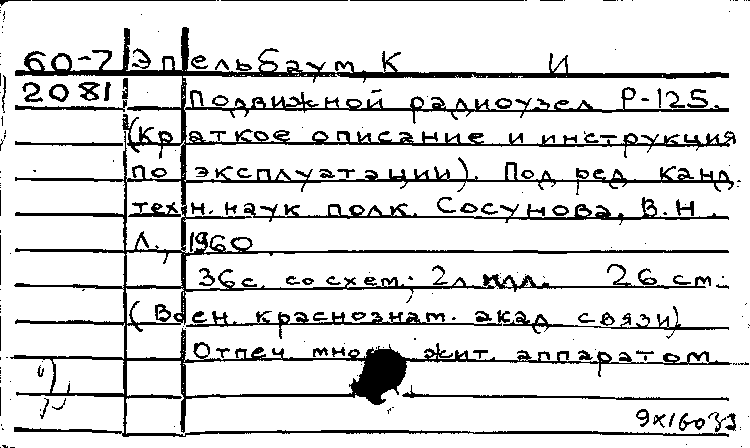 60-7 Эпельбаум, К И
2081 Подвижной радиоузел Р-125.
(Краткое описание и инструкция
по эксплуатации). Под ред. канд.
техн. наук полк. Сосунова, В.Н.
Л., 1960.
36с. со схем.; 2л илл. 26 см.
(Воен. краснознам. акад связи)
Отпеч. жит. аппаратом.